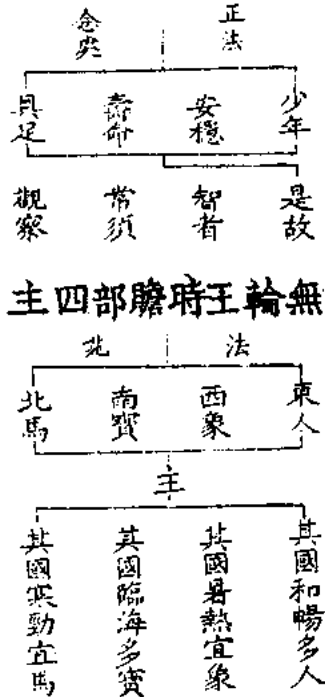 正法
念
少年
安穩
壽命
具足
是故
智者
常須
觀察
無輪王時贍部四主
法
東人
西象
南寶
北馬
主
其國和暢多人
其國暑熱宜象
其國臨海多寶
其國寒勁宜馬